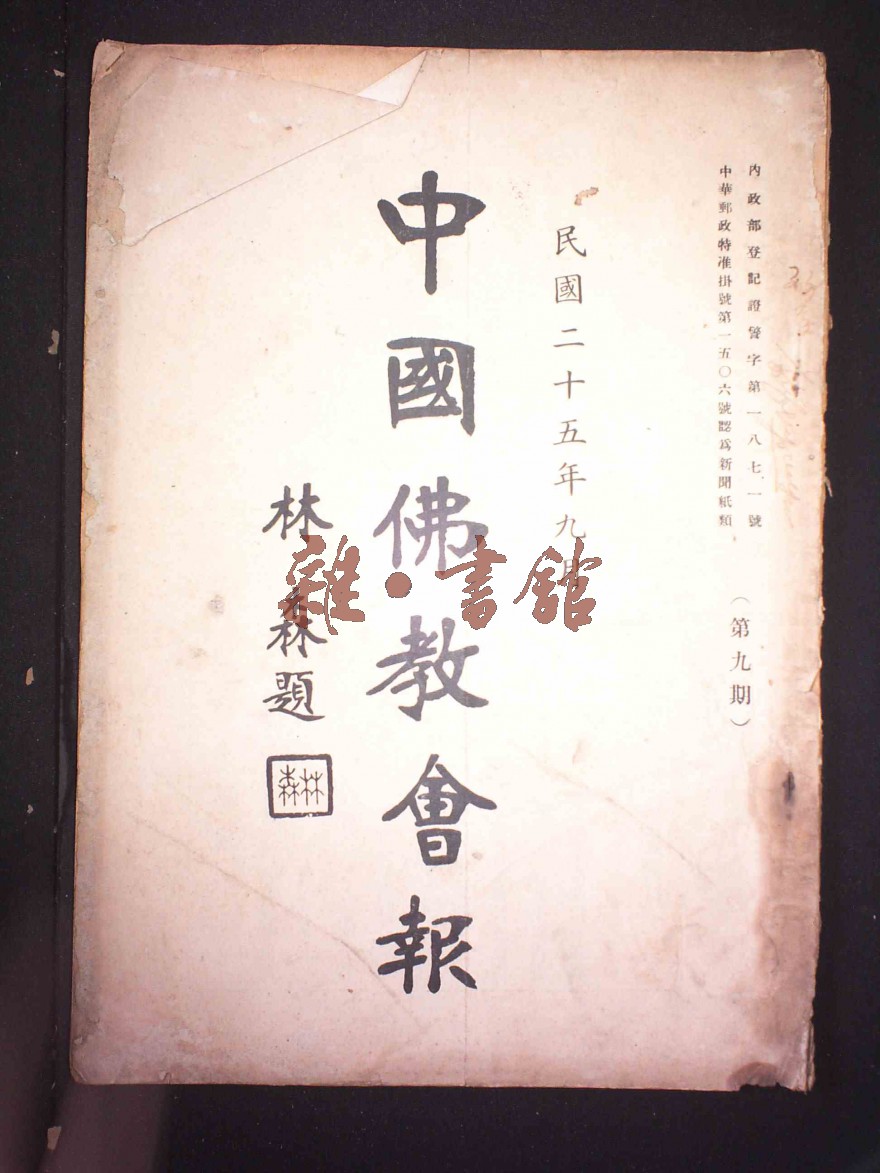 內政部登記證警字第一八七一號
中華郵政特准掛號第一五〇六號認爲新聞紙類
(第九期)
民國二十五年九月
中國佛教會報
林森題
林森
雜·書館